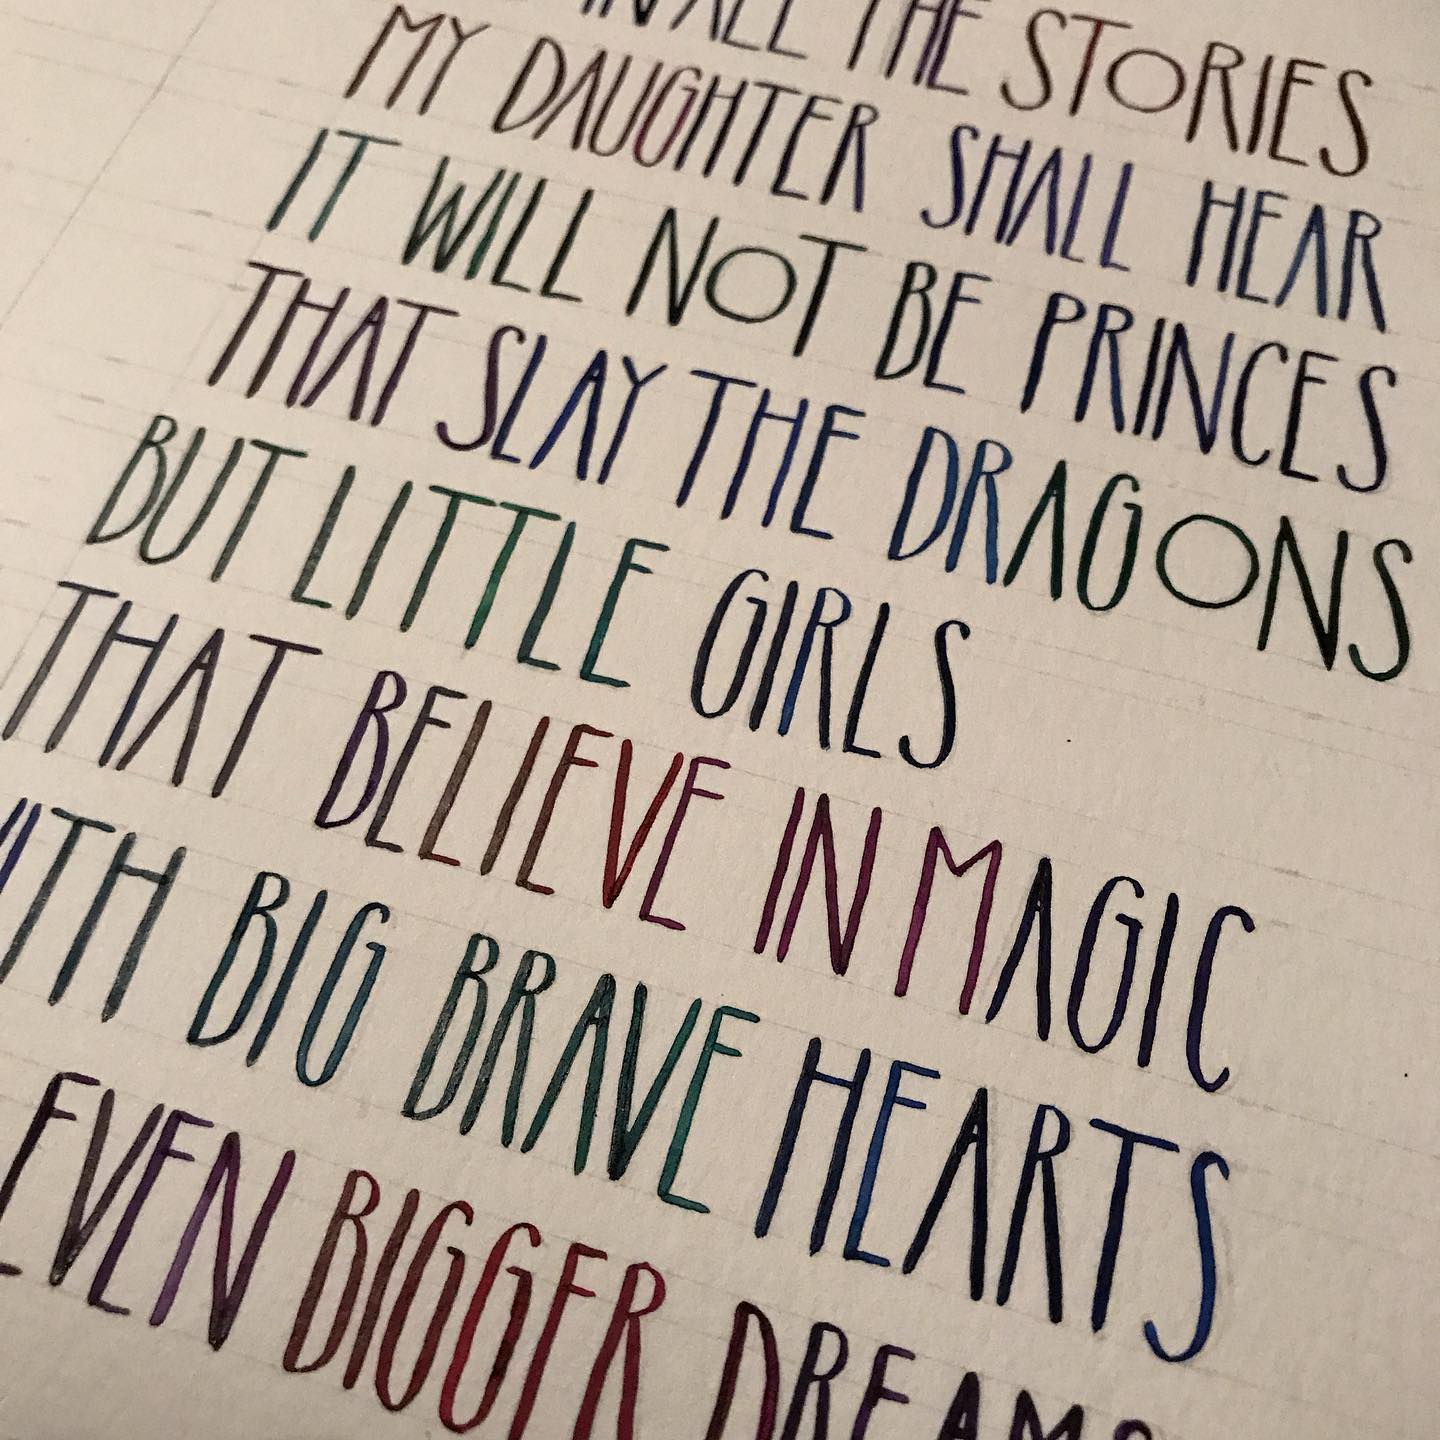 IN ALL THE STORIES
MY DAUGHTER SHALL HEAR
IT WILL NOT BE PRINCES
THAT SLAY THE DRAGONS
BUT LITTLE GIRLS
THAT BELIEVE IN MAGIC
WITH BIG BRAVE HEARTS
EVEN BIGGER DREAMS